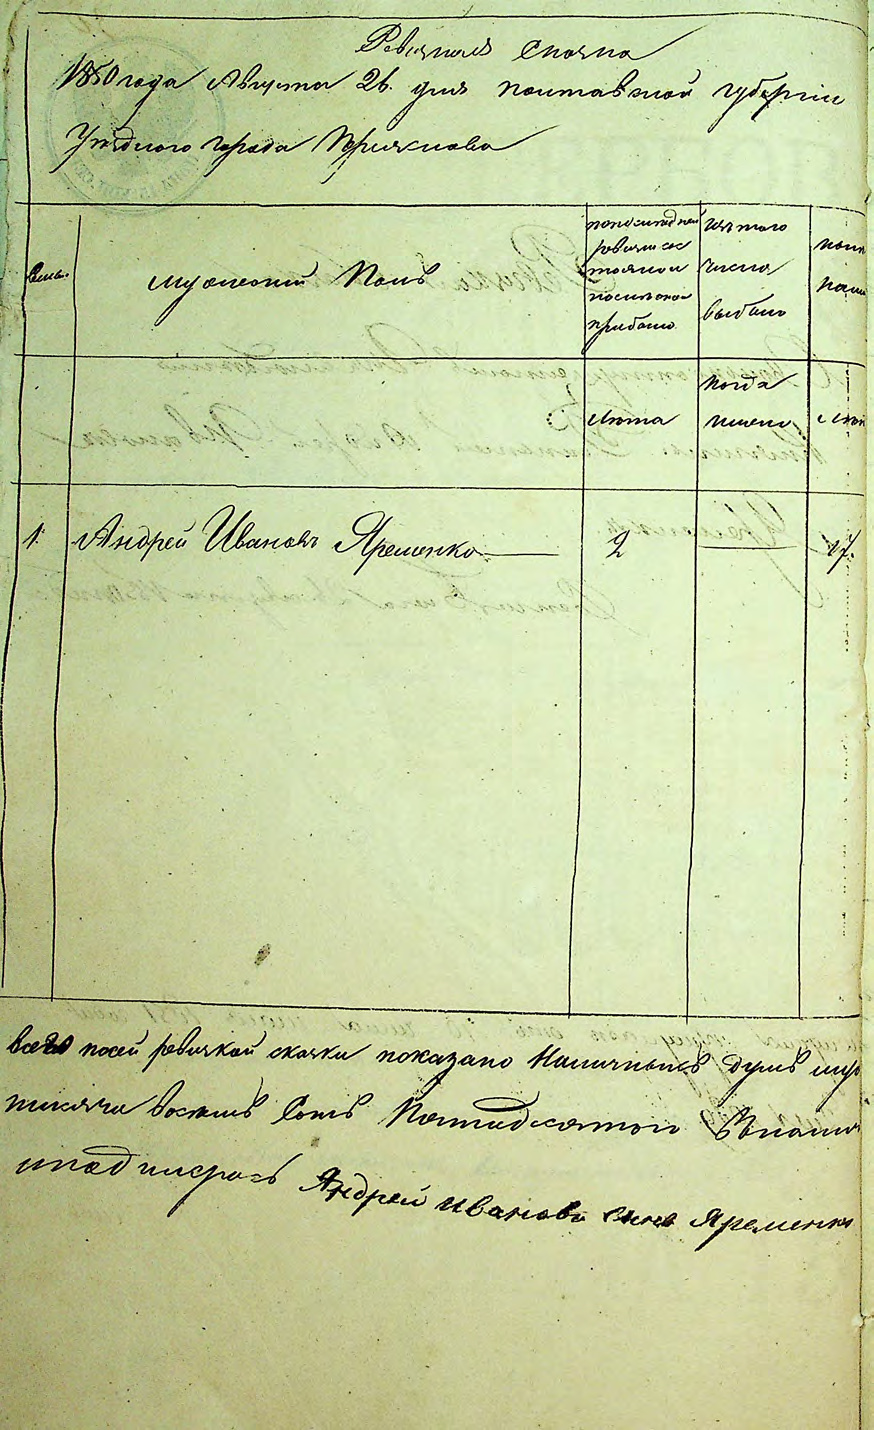 Ревизская сказка
1850 года Августа 26. дня полтавской губернии
Уездного города Прилукова
Семьи.
мужеский Полъ
попоследней
ревизии сос
тояло и
после того
прибыло
изъ того
числа
выбыло
ныне
Лета
когда
имено
Лета
1. Андрей Ивановъ Яременко 2 17.
всего посей ревизкой скаски показано Наличныхъ душъ муж
тисяча восемь Сотъ Пятидесятого
Андрей иванове сынъ Яременко